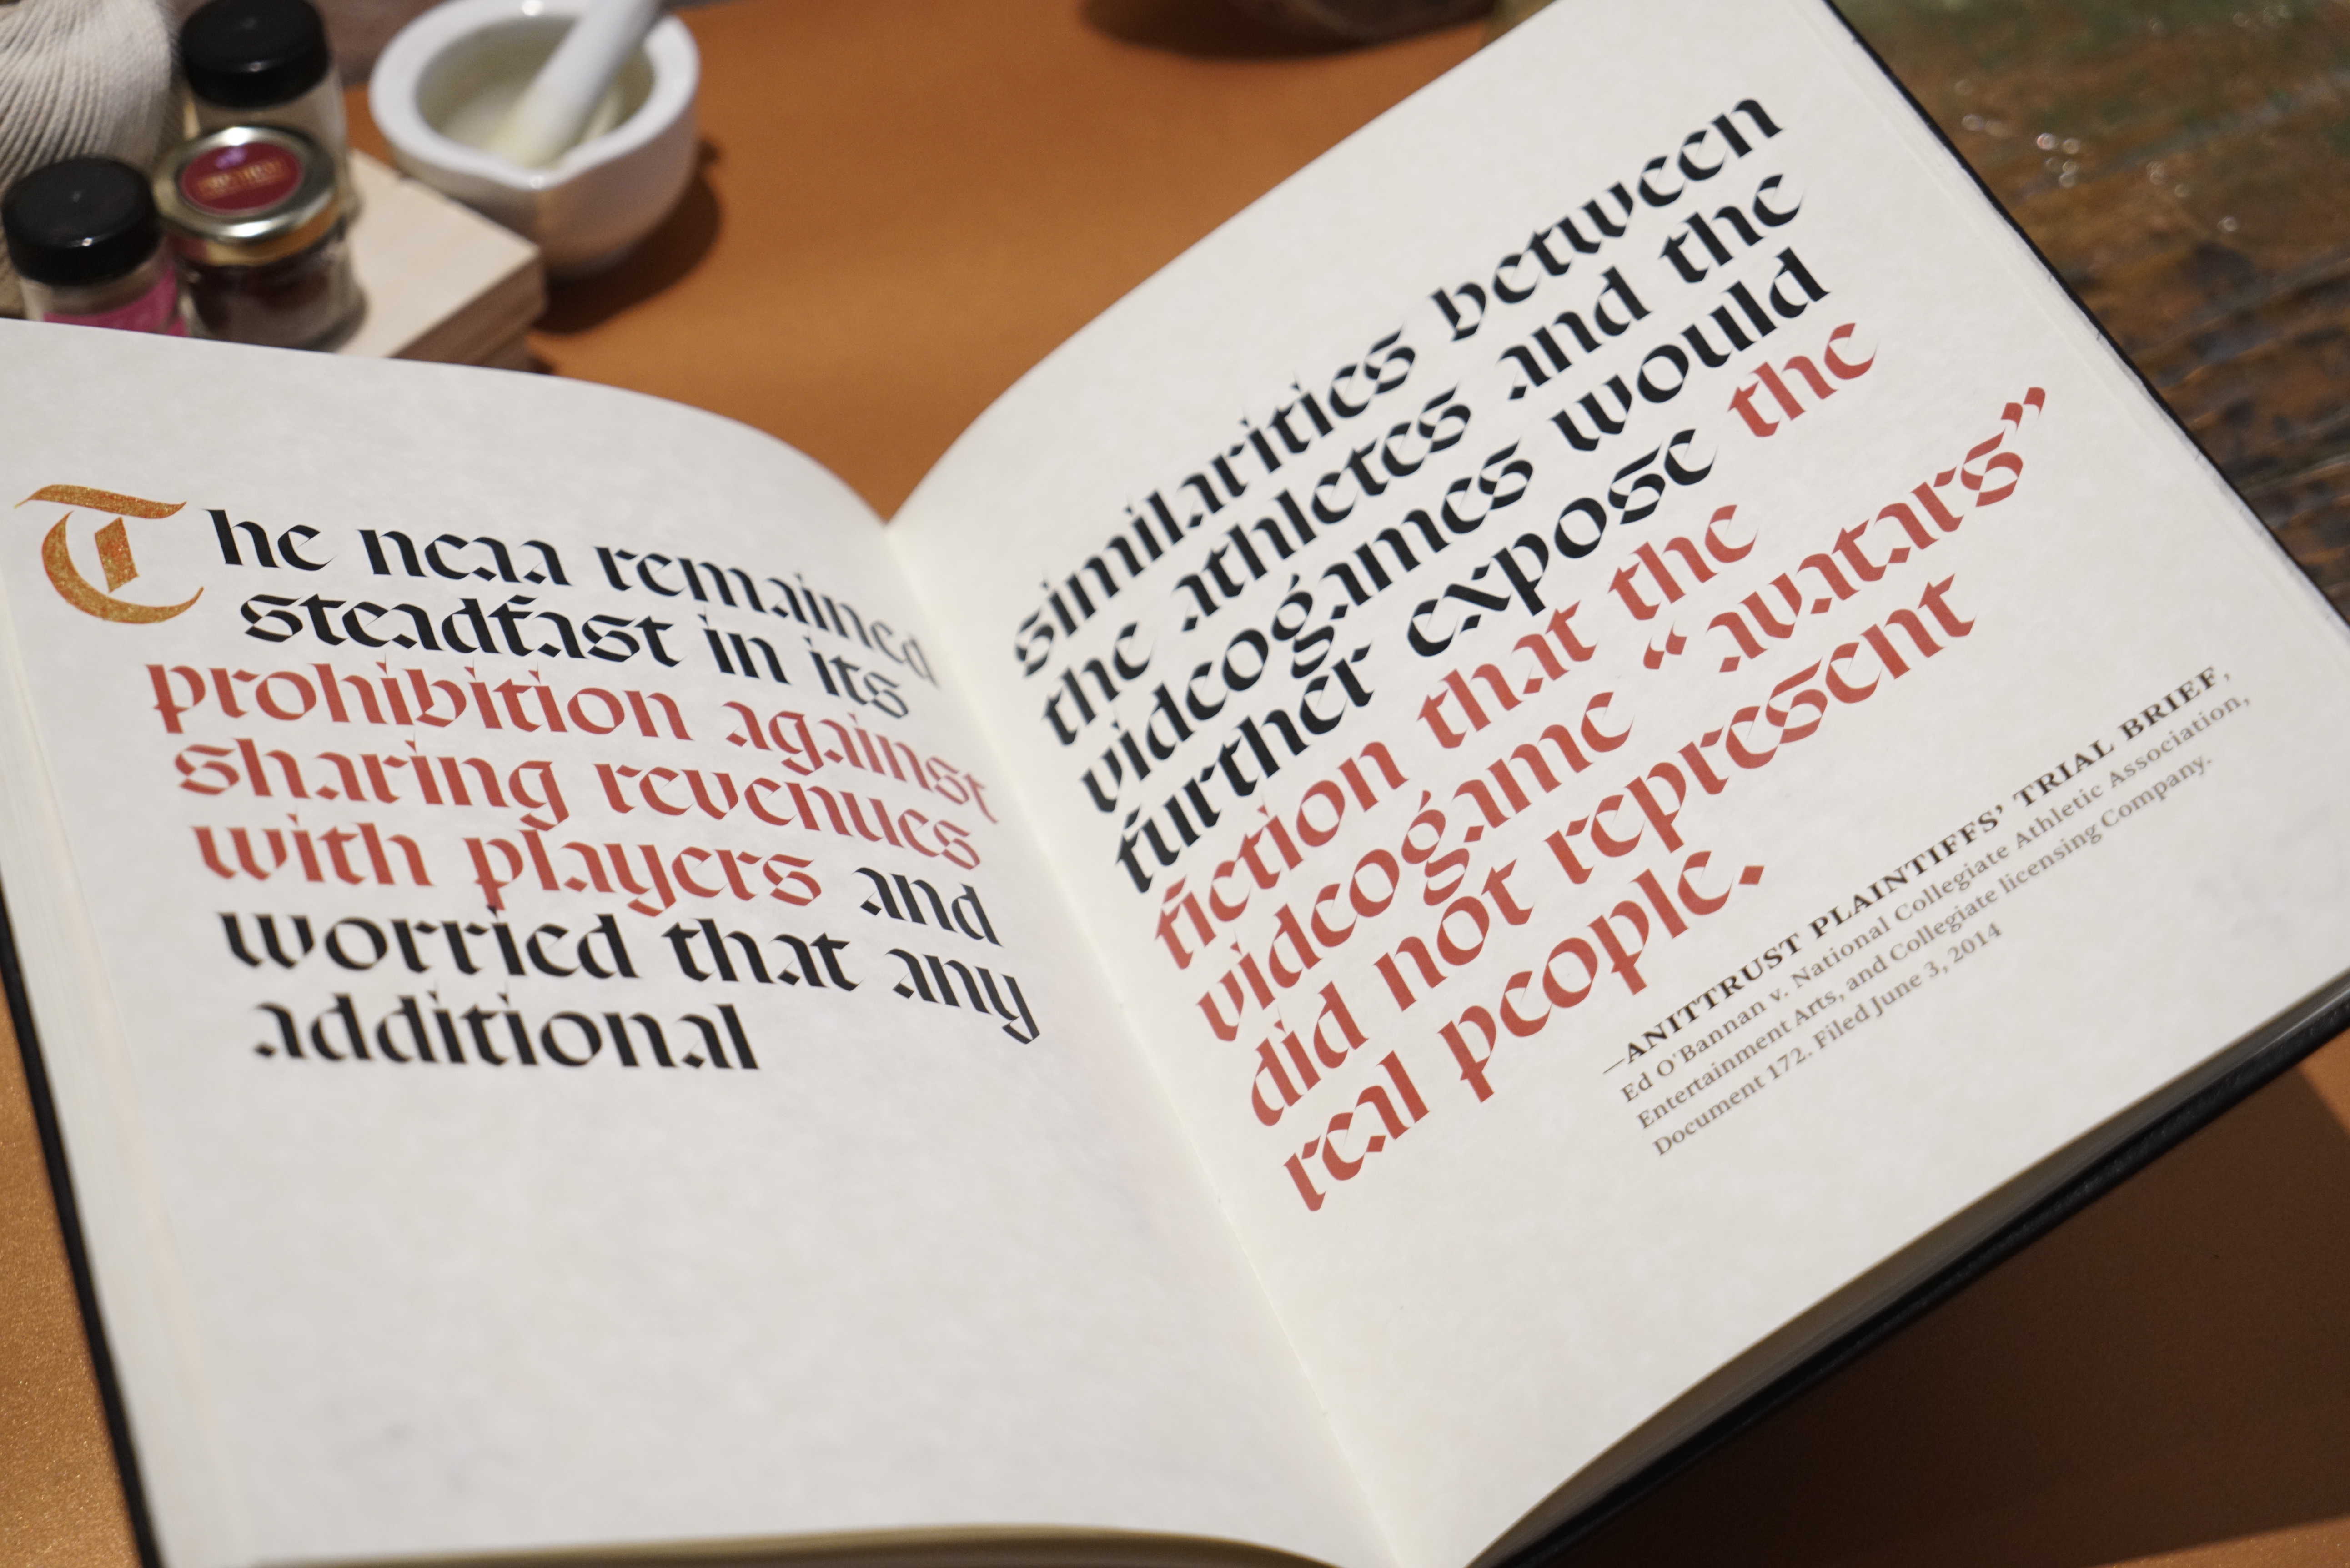 The ncaa remained
steadfast in its
prohibition against
sharing revenues
with players and
worried that any
additional
similarities between
the athletes and the
videogames would
further expose the
fiction that the
videogame “avatars”
did not represent
real people.
—ANITTRUST PLAINTIFFS’ TRIAL BRIEF,
Ed O'Bannan v. National Collegiate Athletic Association,
Entertainment Arts, and Collegiate licensing Company.
Document 172. Filed June 3, 2014